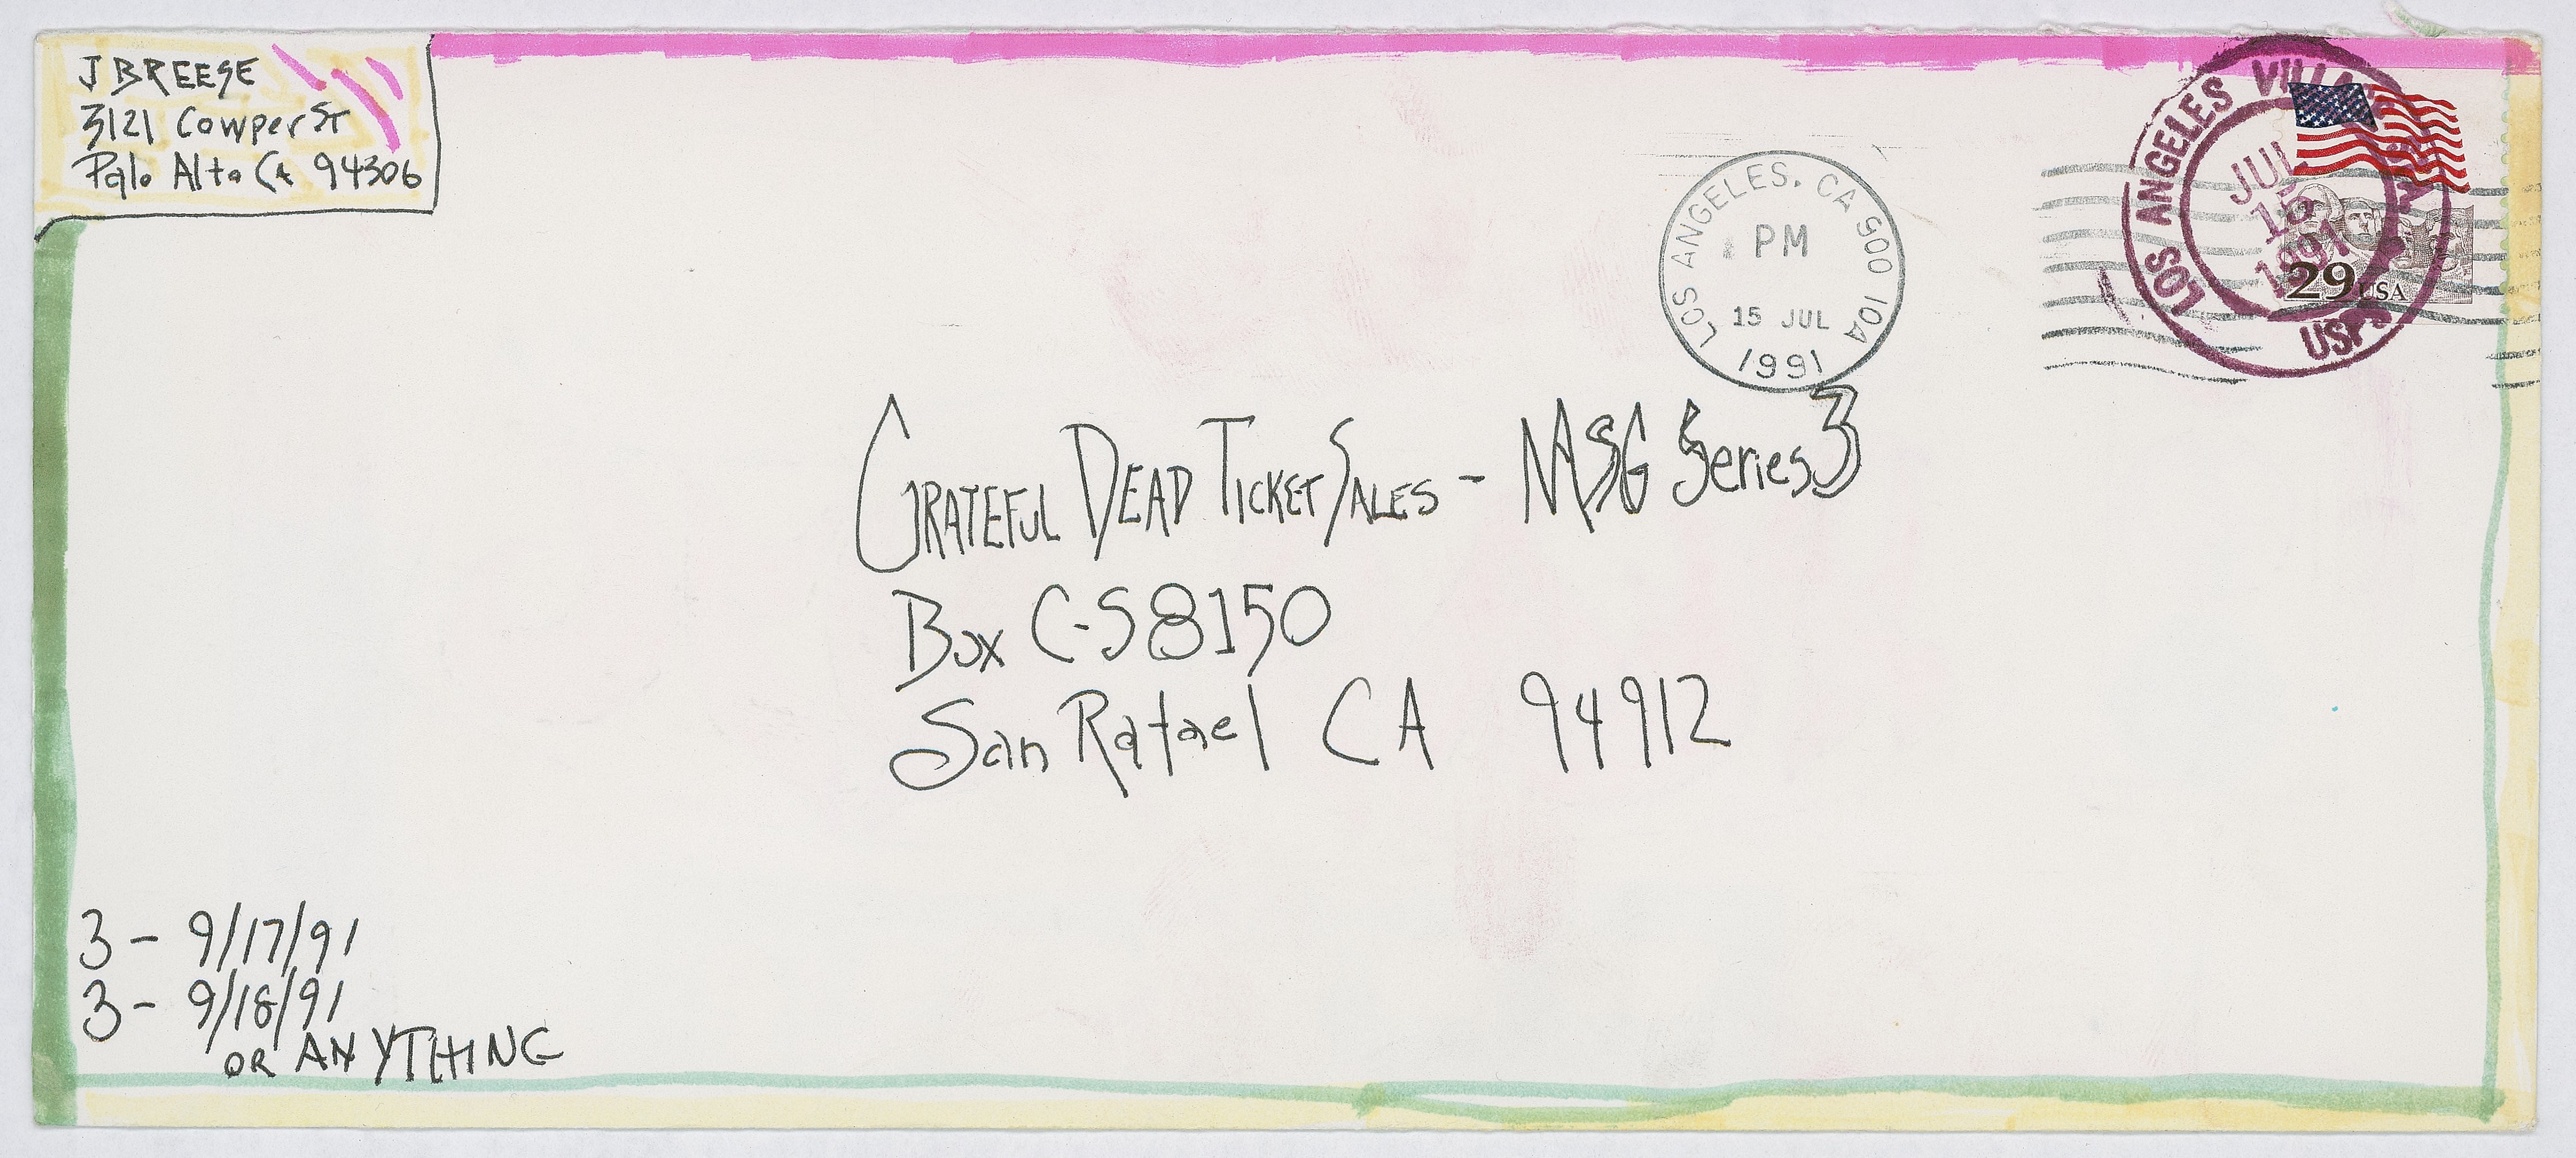 J BREESE
3121 Cowper St
Palo Alto Ca 94306
LOS ANGELES, CA 900 10A
PM
15 JUL
1991
LOS ANGELES
JUL
15
1991
USPS
29 USA
GRATEFUL DEAD TICKET SALES - MSG Series 3
Box C-S 8150
San Rafael CA 94912
3 - 9/17/91
3 - 9/18/91
OR ANYTHING